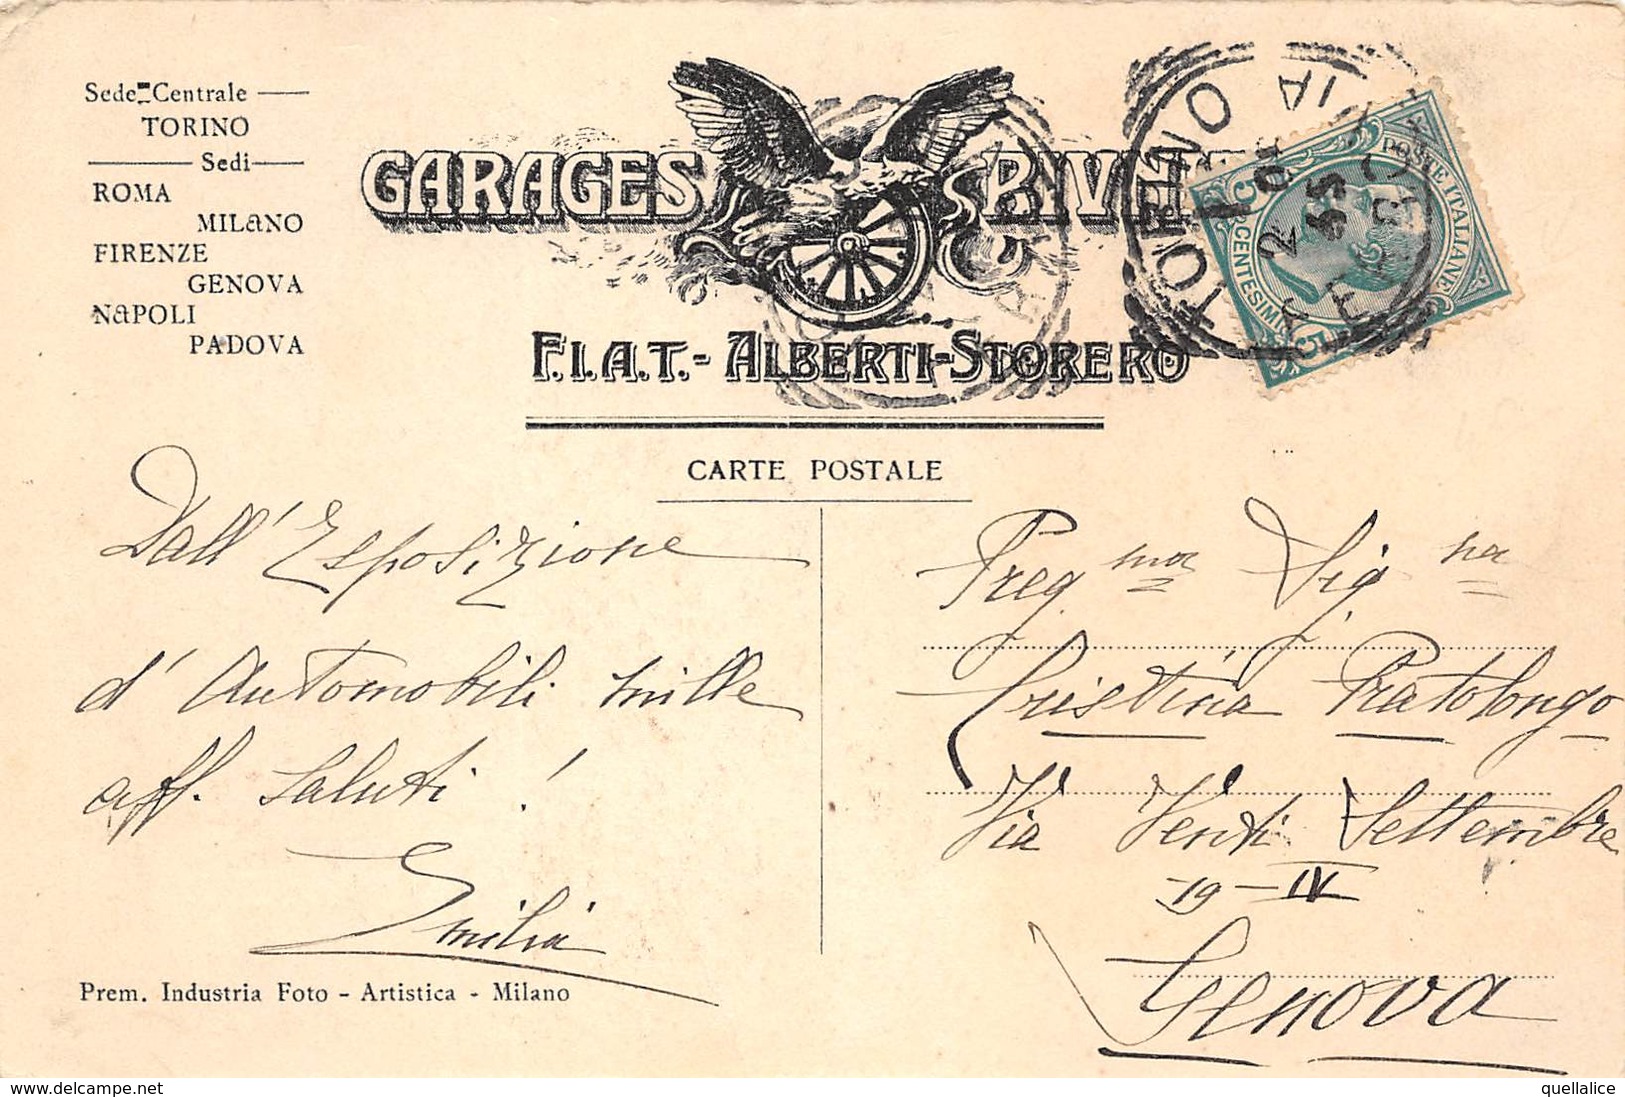 Sede Centrale
TORINO
Sedi
ROMA
MILANO
FIRENZE
GENOVA
NAPOLI
PADOVA
GARAGES
F.I.A.T.-ALBERTI-STORERO
TORINO
POSTE ITALIANE
CENTESIMI 5
CARTE POSTALE
Dall'Esposizione
d'Automobili mille
aff. saluti!
Emilia
Preg ma Sig na
Cristina Pratolongo
Via Venti Settembre
19 - IV
Genova
Prem. Industria Foto - Artistica - Milano
quellalice